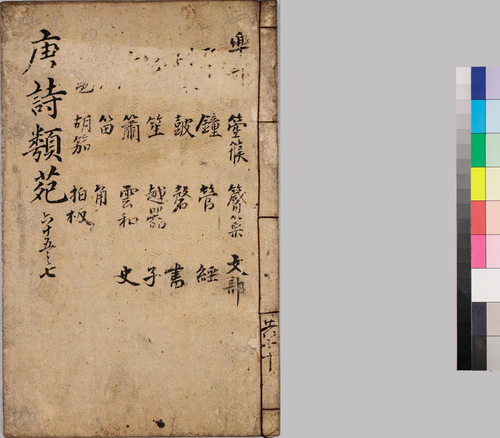 箜篌 文部
鐘 管 經
皷 磬 書
笙 越器 子
簫 雲和 史
笛 角
胡笳 拍板
唐詩類苑 六十五之七